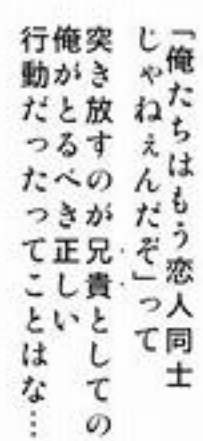 「俺たちはもう恋人同士
じゃねぇんだぞ」って
突き放すのが兄貴としての
俺がとるべき正しい
行動だったってことはな…